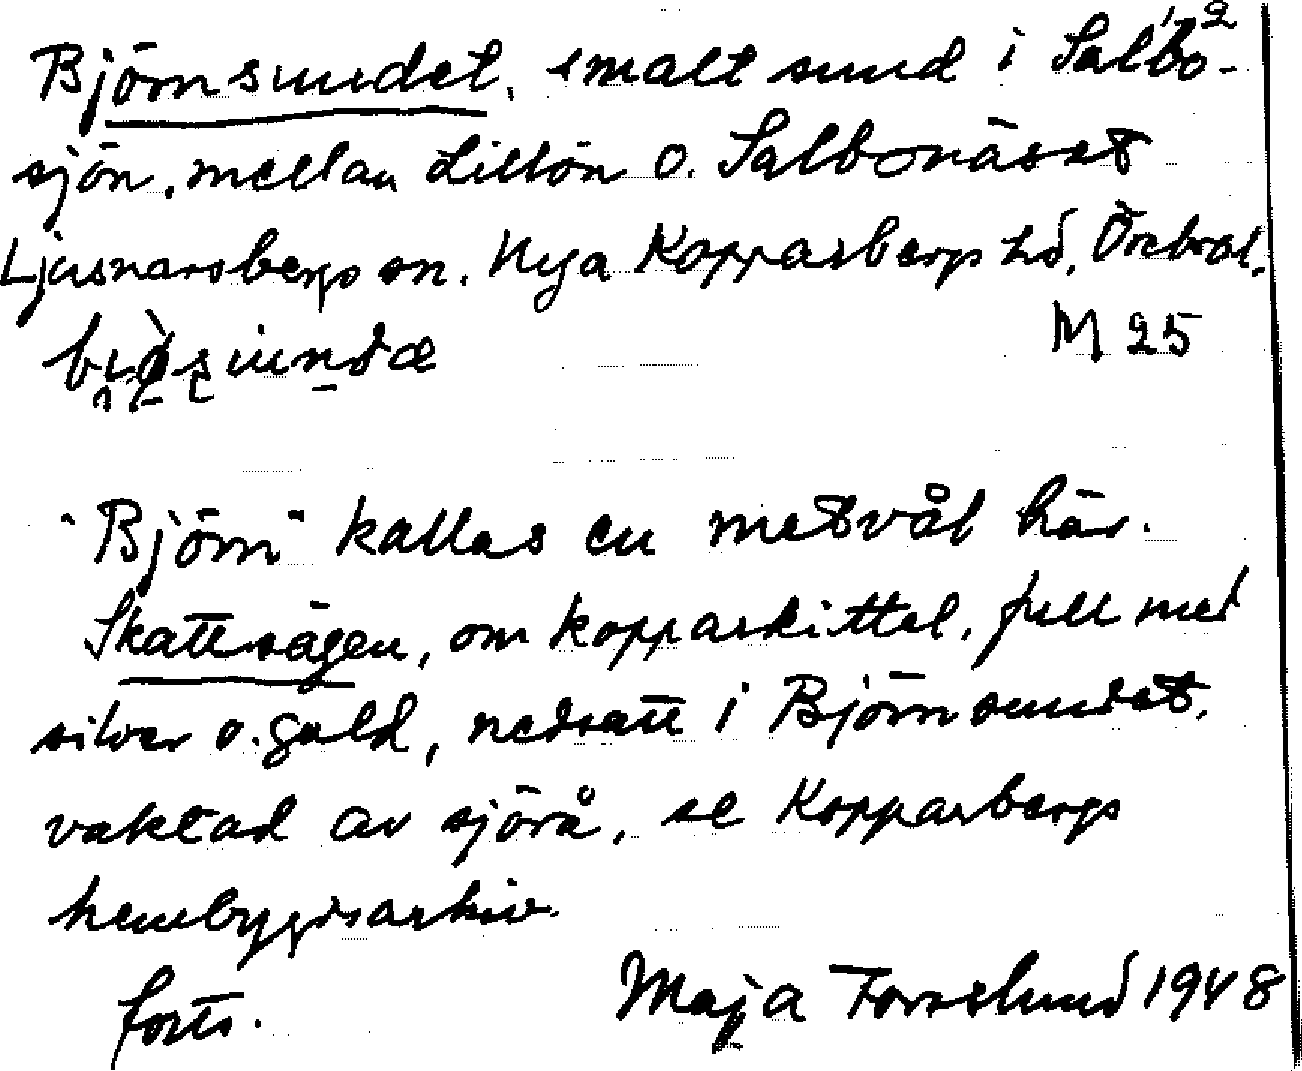 Björnsundet, smalt sund i Salbo-
sjön, mellan Lillön o. Salbonäset
Ljusnarsbergs sn. Nya Kopparbergs hd, Örebro l.
M 25
"Björn" kallas en metsvål här.
Skattsägen, om kopparkittel, full med
silver o. guld, nedsatt i Björnsundet,
vaktad av sjörå, se Kopparbergs
hembygdsarkiv.
forts. Maja Forsslund 1948